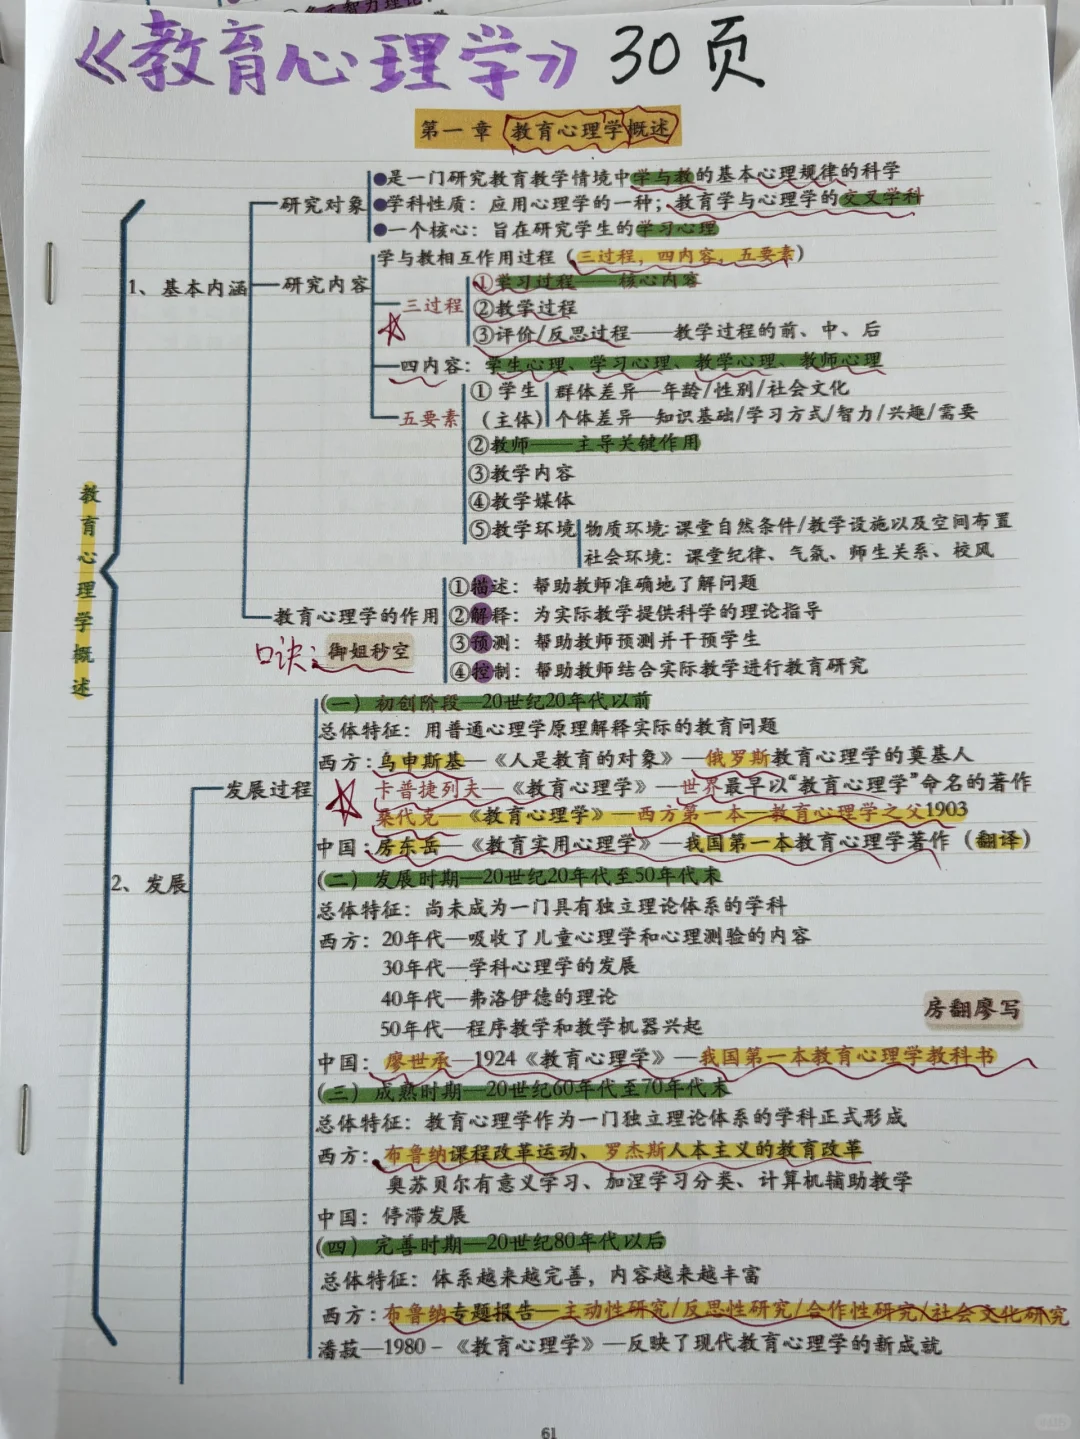 《教育心理学》30页
第一章 教育心理学概述
●是一门研究教育教学情境中学与教的基本心理规律的科学
研究对象 ●学科性质：应用心理学的一种；教育学与心理学的交叉学科
●一个核心：旨在研究学生的学习心理
学与教相互作用过程（三过程，四内容，五要素）
①学习过程——核心内容
1、基本内涵 研究内容
三过程 ②教学过程
③评价/反思过程——教学过程的前、中、后
四内容：学生心理、学习心理、教学心理、教师心理
①学生 群体差异—年龄/性别/社会文化
五要素 （主体） 个体差异—知识基础/学习方式/智力/兴趣/需要
②教师——主导关键作用
③教学内容
④教学媒体
⑤教学环境 物质环境：课堂自然条件/教学设施以及空间布置
社会环境：课堂纪律、气氛、师生关系、校风
教育心理学概述
①描述：帮助教师准确地了解问题
教育心理学的作用 ②解释：为实际教学提供科学的理论指导
口诀：御姐秒空 ③预测：帮助教师预测并干预学生
④控制：帮助教师结合实际教学进行教育研究
（一）初创阶段—20世纪20年代以前
总体特征：用普通心理学原理解释实际的教育问题
西方：乌申斯基—《人是教育的对象》—俄罗斯教育心理学的奠基人
发展过程 卡普捷列夫—《教育心理学》—世界最早以“教育心理学”命名的著作
桑代克—《教育心理学》—西方第一本—教育心理学之父1903
中国：房东岳—《教育实用心理学》—我国第一本教育心理学著作（翻译）
2、发展 （二）发展时期—20世纪20年代至50年代末
总体特征：尚未成为一门具有独立理论体系的学科
西方：20年代—吸收了儿童心理学和心理测验的内容
30年代—学科心理学的发展
40年代—弗洛伊德的理论
房翻廖写
50年代—程序教学和教学机器兴起
中国：廖世承—1924《教育心理学》—我国第一本教育心理学教科书
（三）成熟时期—20世纪60年代至70年代末
总体特征：教育心理学作为一门独立理论体系的学科正式形成
西方：布鲁纳课程改革运动、罗杰斯人本主义的教育改革
奥苏贝尔有意义学习、加涅学习分类、计算机辅助教学
中国：停滞发展
（四）完善时期—20世纪80年代以后
总体特征：体系越来越完善，内容越来越丰富
西方：布鲁纳专题报告—主动性研究/反思性研究/合作性研究/社会文化研究
潘菽—1980-《教育心理学》—反映了现代教育心理学的新成就
61